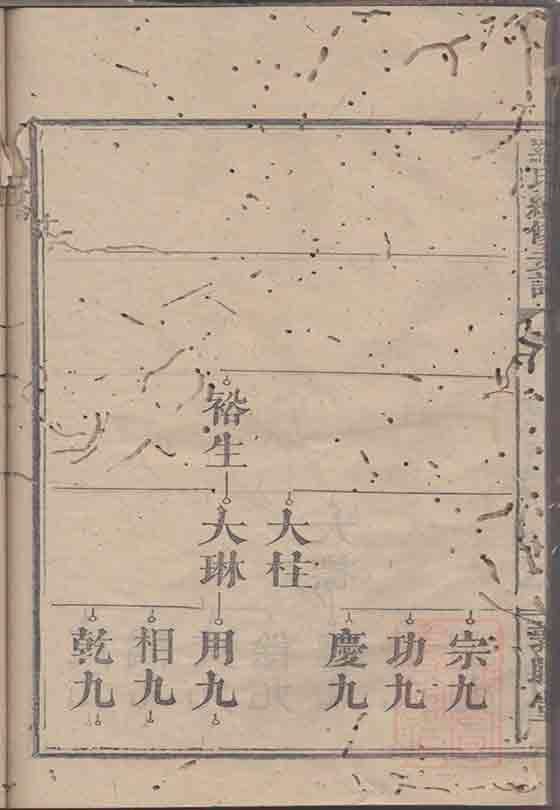 裕生
大柱
大琳
宗九
功九
慶九
用九
相九
乾九